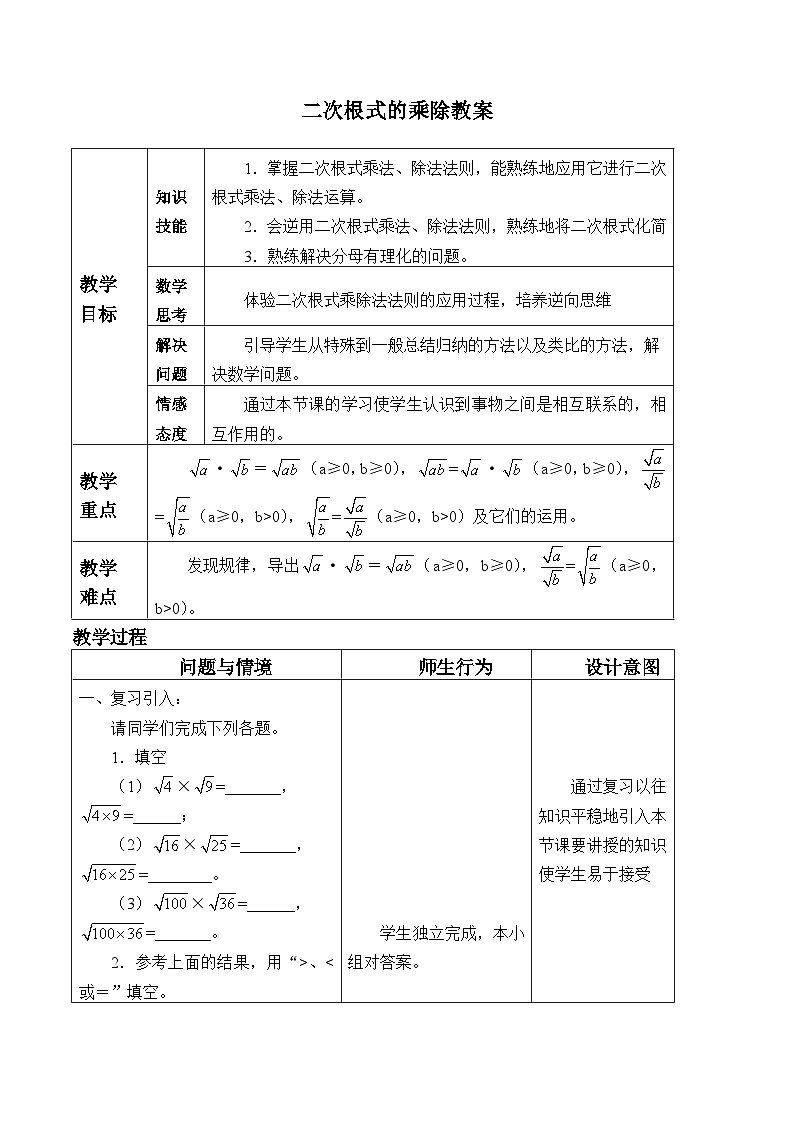 二次根式的乘除教案
教学
目标
知识
技能
1．掌握二次根式乘法、除法法则，能熟练地应用它进行二次
根式乘法、除法运算。
2．会逆用二次根式乘法、除法法则，熟练地将二次根式化简
3．熟练解决分母有理化的问题。
数学
思考
体验二次根式乘除法法则的应用过程，培养逆向思维
解决
问题
引导学生从特殊到一般总结归纳的方法以及类比的方法，解
决数学问题。
情感
态度
通过本节课的学习使学生认识到事物之间是相互联系的，相
互作用的。
教学
重点
√a·√b＝√ab（a≥0,b≥0），√ab=√a·√b（a≥0,b≥0），√a/√b
=√(a/b)（a≥0，b>0），√(a/b)=√a/√b（a≥0，b>0）及它们的运用。
教学
难点
发现规律，导出√a·√b＝√ab（a≥0，b≥0），√a/√b=√(a/b)（a≥0，
b>0）。
教学过程
问题与情境 师生行为 设计意图
一、复习引入：
请同学们完成下列各题。
1．填空
（1）√4×√9=_______，
√4×9=______；
（2）√16×√25=_______，
√16×25=________。
（3）√100×√36=______，
√100×36=_______。
2．参考上面的结果，用“>、<
或＝”填空。
学生独立完成，本小
组对答案。
通过复习以往
知识平稳地引入本
节课要讲授的知识
使学生易于接受